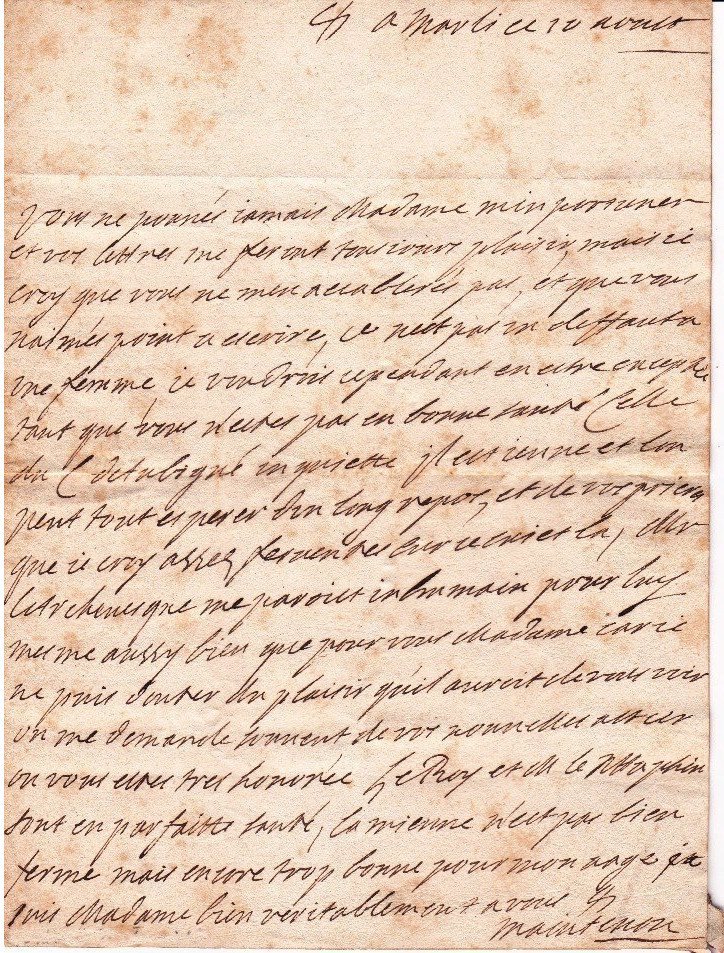 a Marli ce 10 aoust
vous ne pouvés iamais Madame m'inportuner
et vos lettres me feront tousiours plaisir, mais ie
croy que vous ne m'en accablerés pas, et que vous
n'aimés point a escrire, ce n'est pas un deffaut a
une femme ie voudrois cependant en estre exceptée
tant que vous n'estes pas en bonne santé Celle
du C d'Aubigné inquiette il est ieune et l'on
peut tout esperer d'un long repos, et de vos prieres
que ie croy assez ferventes sur ce la, Mr
l'archevesque me paroist inhumain pour luy
mesme aussy bien que pour vous Madame car ie
ne puis douter du plaisir qu'il auroit de vous voir
on me demande souvent de vos nouvelles
ou vous estes tres honorée Le Roy et M le Dauphin
sont en parfaitte santé, la mienne n'est pas bien
ferme mais encore trop bonne pour mon aage ie
suis Madame bien veritablement a vous
Maintenon